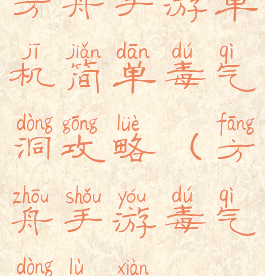 方舟手游单
jī jiǎn dān dú qì
机简单毒气
dòng gōng lüè fāng
洞攻略（方
zhōu shǒu yóu dú qì
舟手游毒气
dòng lù xiàn